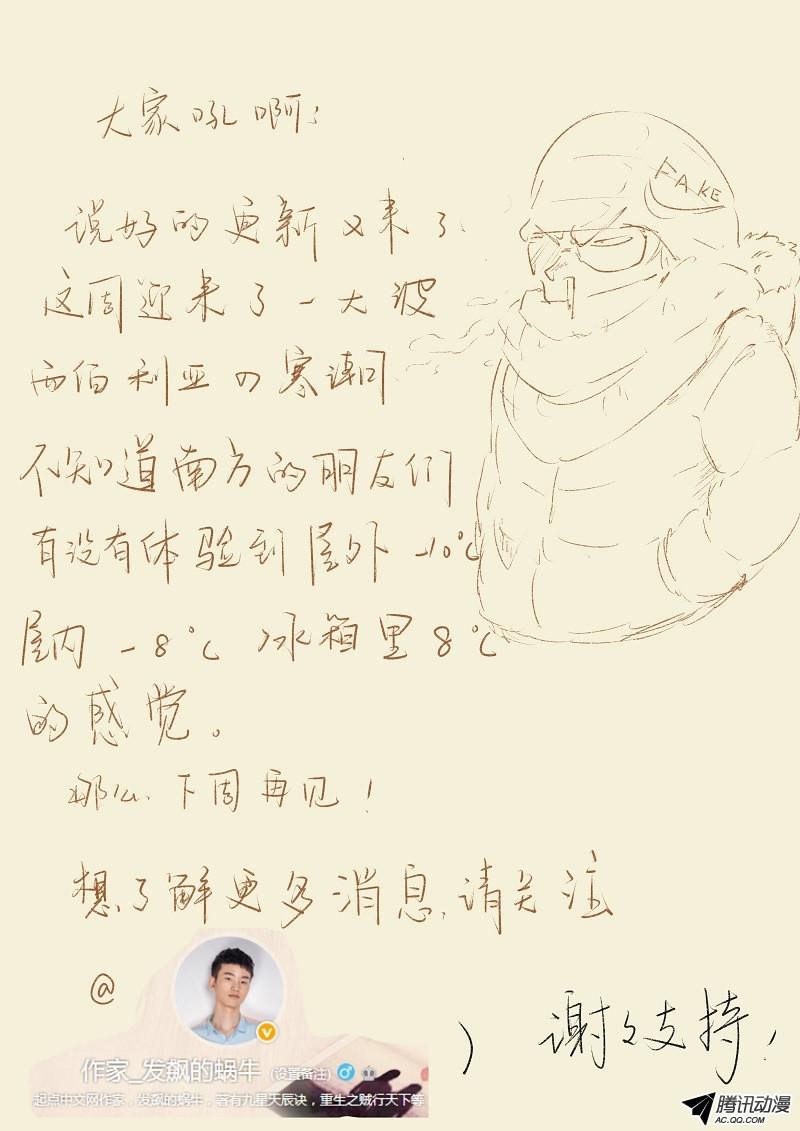 大家吼啊：
FAKE
说好的更新又来了
这周迎来了一大波
西伯利亚の寒潮
不知道南方的朋友们
有没有体验到屋外 -10℃
屋内 -8℃ 冰箱里 8℃
的感觉。
那么、下周再见！
想了解更多消息，请关注
@
作家_发飙的蜗牛 (设置备注)
起点中文网作家，发飙的蜗牛，著有九星天辰诀，重生之贼行天下等
)
谢々支持！
腾讯动漫
AC.QQ.COM